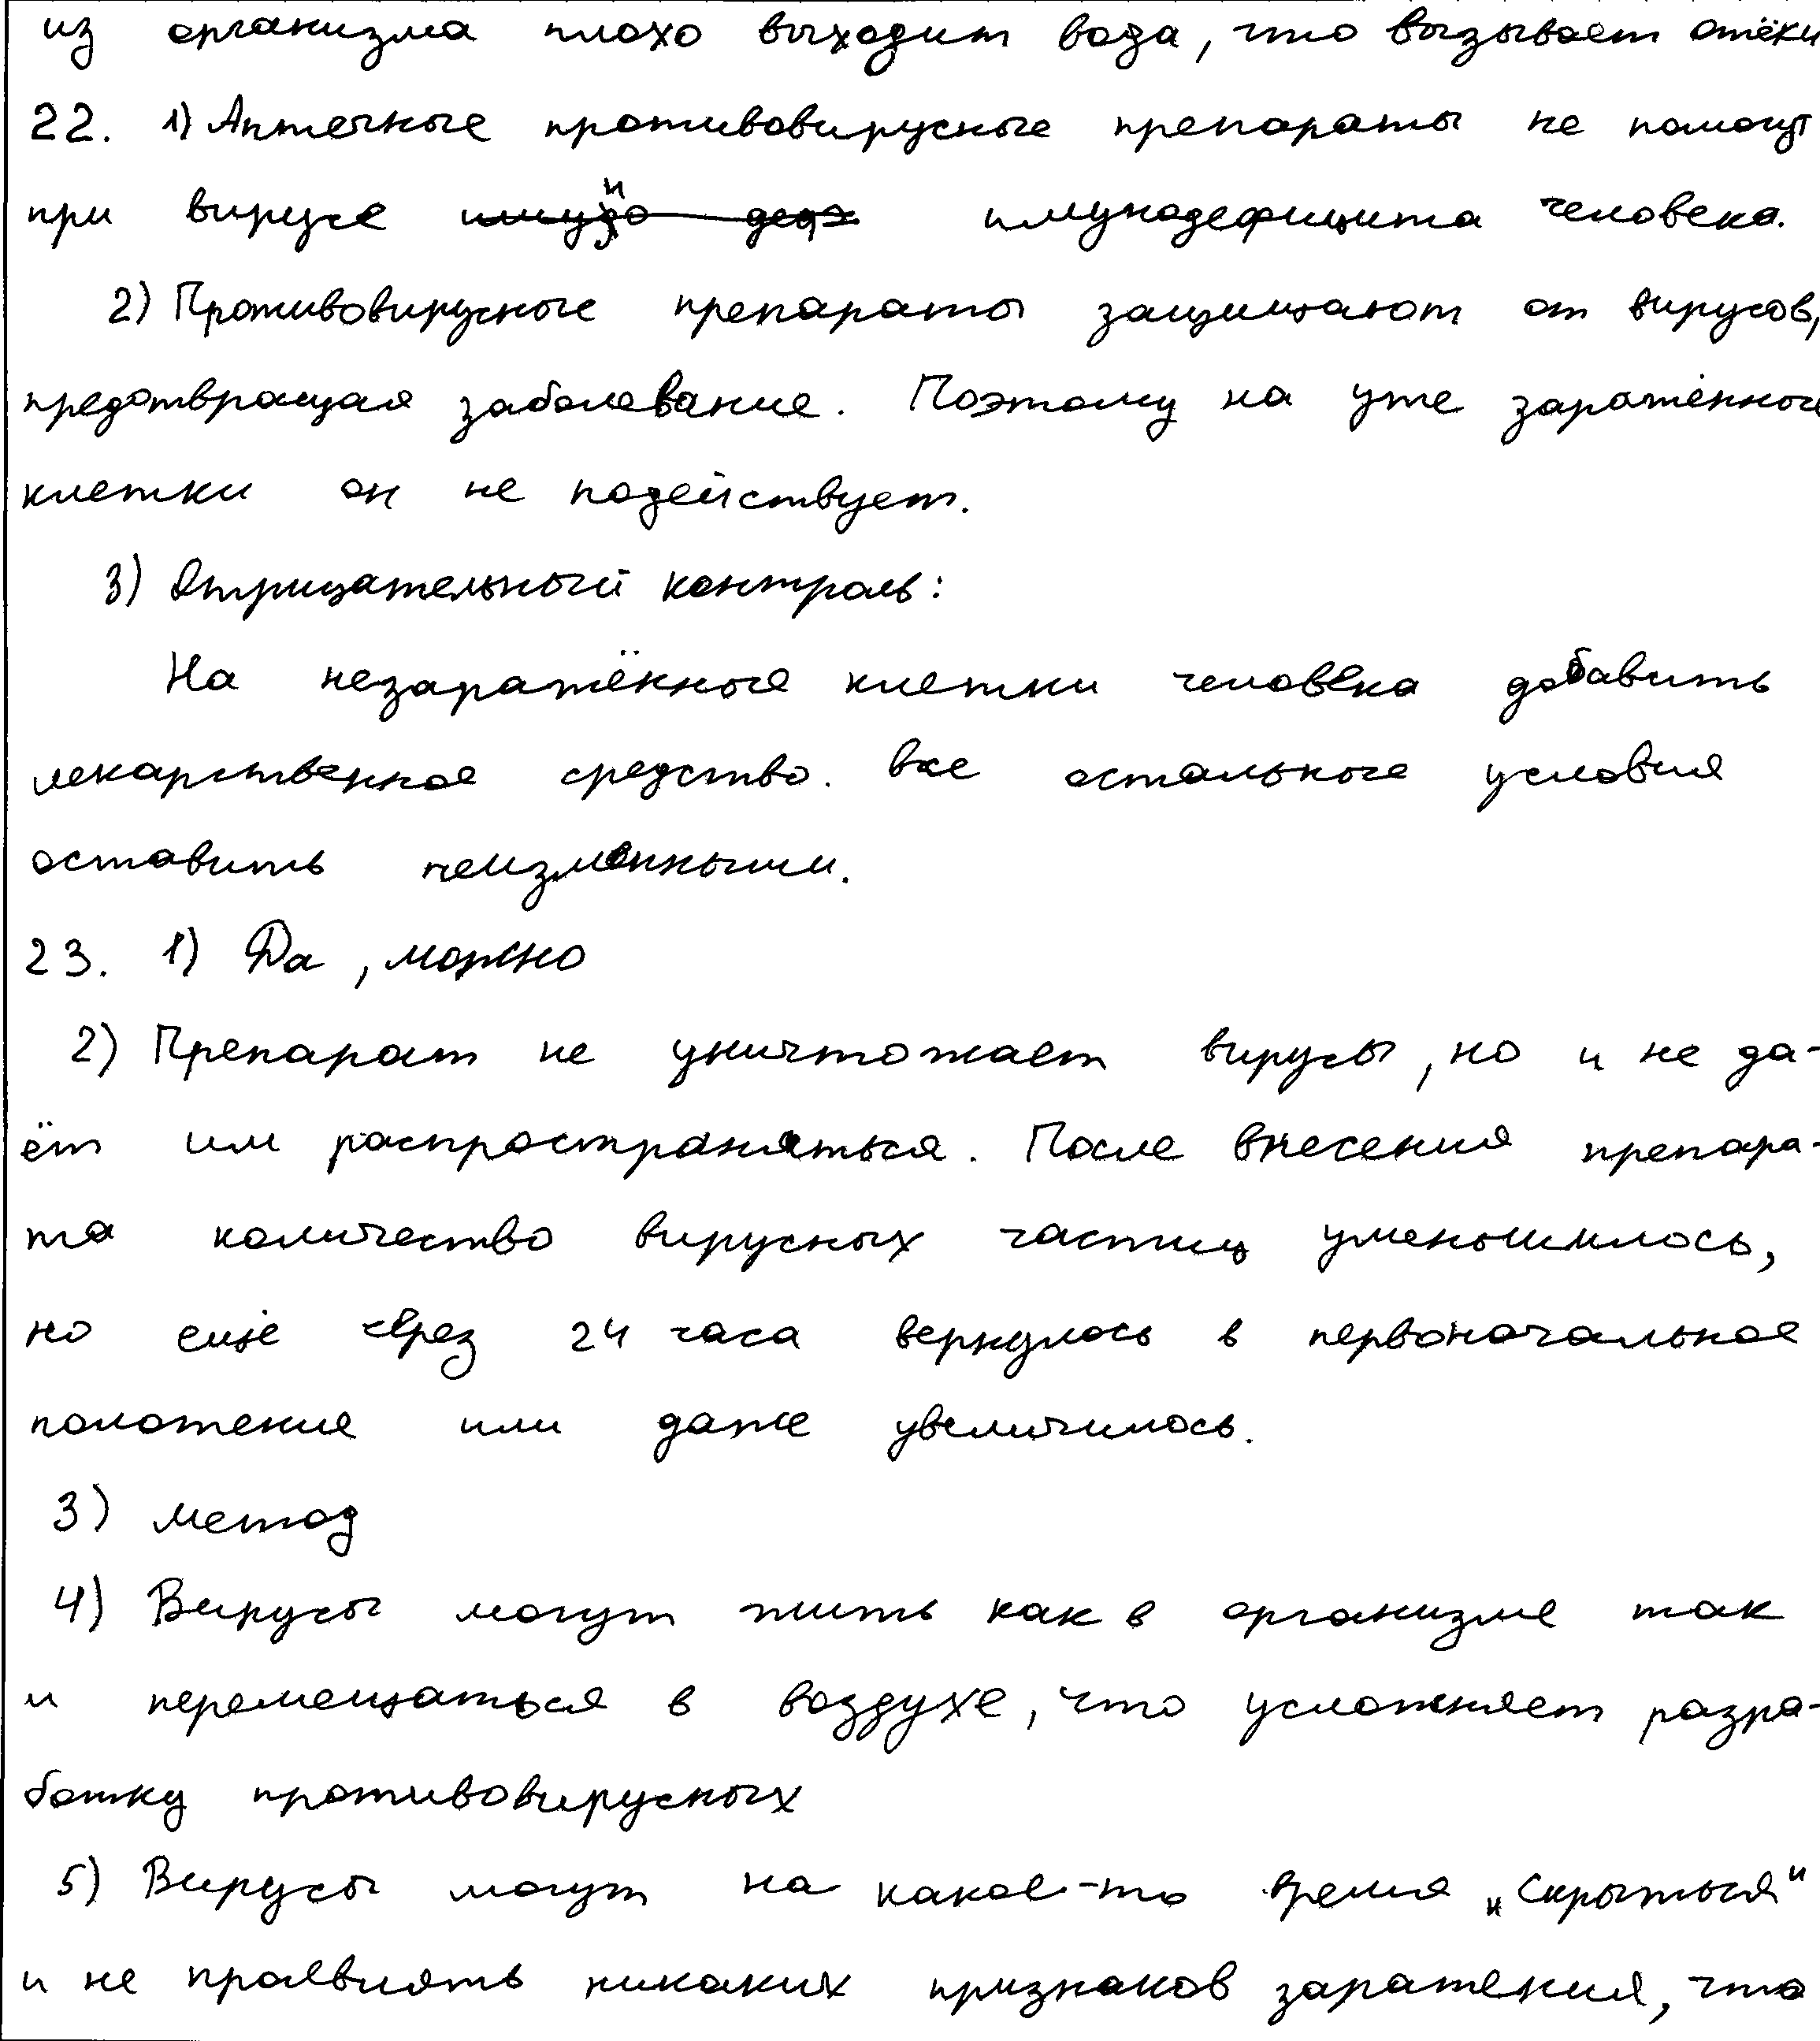 из организма плохо выходит вода, что вызывает отёки
22. 1) Аптечные противовирусные препараты не помогут
при вирусе имунодефицита человека.
2) Противовирусные препараты защищают от вирусов,
предотвращая заболевание. Поэтому на уже заражённые
клетки он не подействует.
3) Отрицательный контроль:
На незаражённые клетки человека добавить
лекарственное средство. Все остальные условия
оставить неизменными.
23. 1) Да, можно
2) Препарат не уничтожает вирусы, но и не да-
ёт им распространяться. После внесения препара-
та количество вирусных частиц уменьшилось,
но ещё через 24 часа вернулось в первоначальное
положение или даже увеличилось.
3) метод
4) Вирусы могут жить как в организме так
и перемещаться в воздухе, что усложняет разра-
ботку противовирусных
5) Вирусы могут на какое-то время „скрыться"
и не проявлять никаких признаков заражения, что